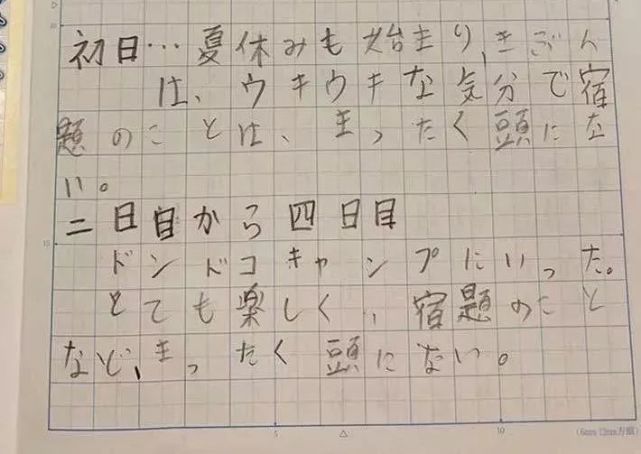 初日…夏休みも始まり,きぶん
は、ウキウキな気分で宿
題のことは、まったく頭にな
い。
二日目から四日目
ドンドコキャンプにいった。
とても楽しく、宿題のこと
など、まったく頭にない。
5
△
10
(6mm 12mm方眼)
15